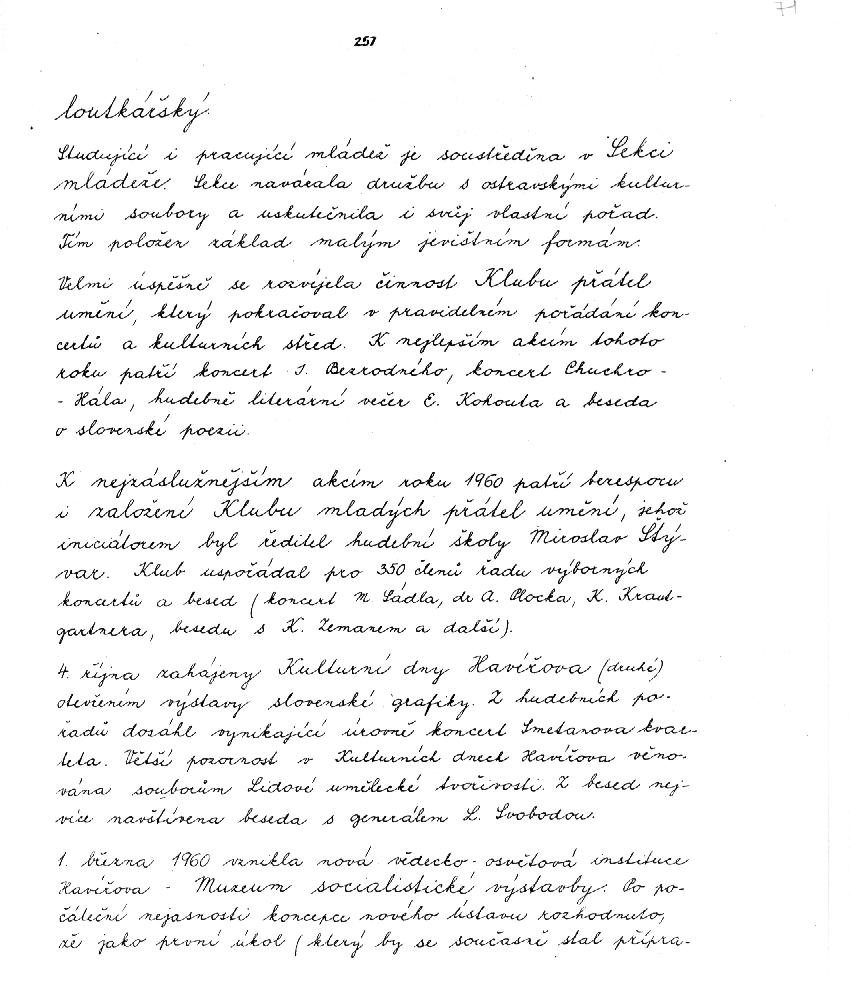 71
257
loutkářský.
Studující i pracující mládež je soustředěna v Sekci
mládeže. Sekce navázala družbu s ostravskými kultur-
ními soubory a uskutečnila i svůj vlastní pořad.
Tím položen základ malým jevištním formám.
Velmi úspěšně se rozvíjela činnost Klubu přátel
umění, který pokračoval v pravidelném pořádání kon-
certů a kulturních střed. K nejlepším akcím tohoto
roku patří koncert I. Bezrodného, koncert Chuchro -
- Hála, hudebně literární večer E. Kohouta a beseda
o slovenské poezii.
K nejzáslužnějším akcím roku 1960 patří bezesporu
i založení Klubu mladých přátel umění, jehož
iniciátorem byl ředitel hudební školy Miroslav Stý-
var. Klub uspořádal pro 350 členů řadu výborných
koncertů a besed (koncert M. Sádla, dr A. Plocka, K. Kraut-
gartnera, besedu s K. Zemanem a další).
4. října zahájeny Kulturní dny Havířova (druhé)
otevřením výstavy slovenské grafiky. Z hudebních po-
řadů dosáhl vynikající úrovně koncert Smetanova kvar-
teta. Větší pozornost v Kulturních dnech Havířova věno-
vána souborům Lidové umělecké tvořivosti. Z besed nej-
více navštívena beseda s generálem L. Svobodou.
1. března 1960 vznikla nová vědecko-osvětová instituce
Havířova - Muzeum socialistické výstavby. Po po-
čáteční nejasnosti koncepce nového ústavu rozhodnuto,
že jako první úkol (který by se současně stal přípra-